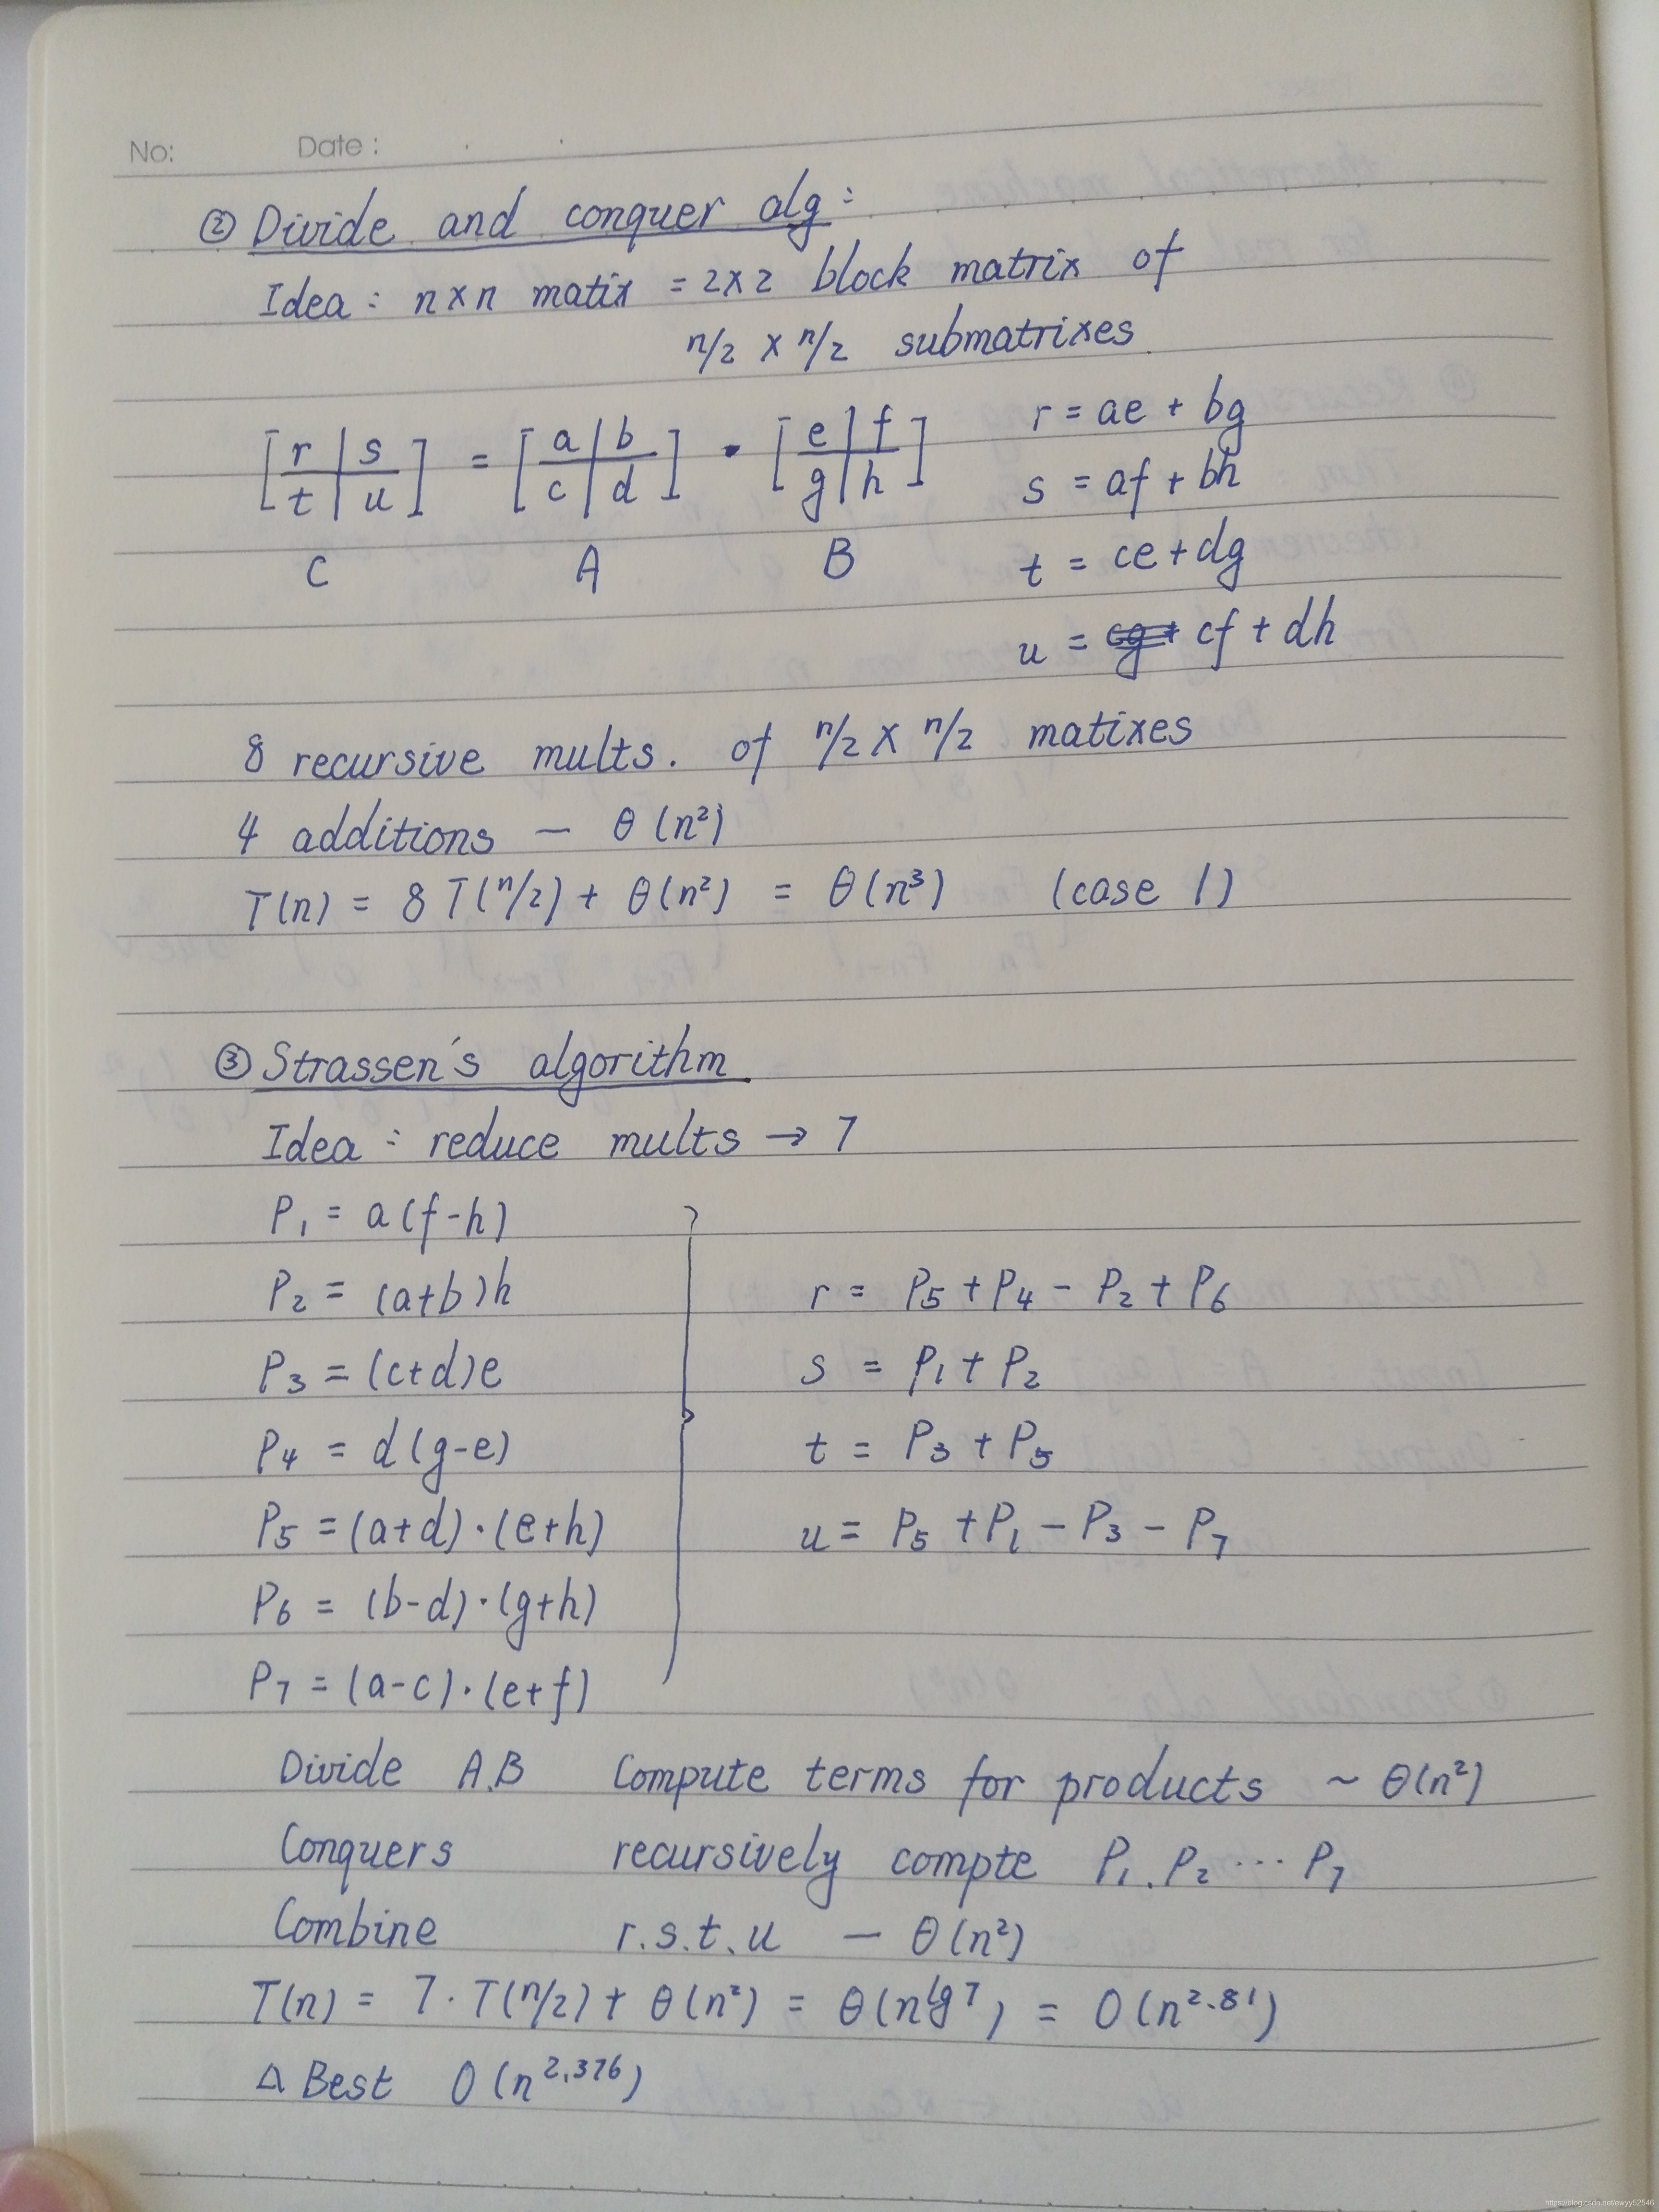 No: Date :
② Divide and conquer alg :
Idea : n×n matix = 2×2 block matrix of
n/2 × n/2 submatrixes
[r|s / t|u] = [a|b / c|d] · [e|f / g|h]
C A B
r = ae + bg
s = af + bh
t = ce + dg
u = cf + dh
8 recursive mults. of n/2 × n/2 matixes
4 additions — θ(n²)
T(n) = 8 T(n/2) + θ(n²) = θ(n³) (case 1)
③ Strassen's algorithm
Idea : reduce mults → 7
P₁ = a(f-h)
P₂ = (a+b)h
P₃ = (c+d)e
P₄ = d(g-e)
P₅ = (a+d)·(e+h)
P₆ = (b-d)·(g+h)
P₇ = (a-c)·(e+f)
r = P₅ + P₄ - P₂ + P₆
s = P₁ + P₂
t = P₃ + P₅
u = P₅ + P₁ - P₃ - P₇
Divide A.B Compute terms for products ~ θ(n²)
Conquers recursively compte P₁. P₂ ··· P₇
Combine r.s.t.u — θ(n²)
T(n) = 7·T(n/2) + θ(n²) = θ(n^lg7) = O(n^2.81)
△ Best O(n^2.376)
https://blog.csdn.net/ewyy52546